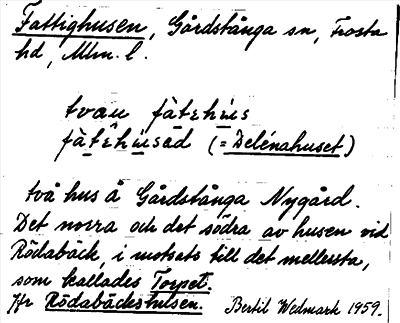 Fattighusen, Gårdstånga sn, Frosta
hd, Mlm. l.
tvau fàtehùs
fàtêhùsad (= Delénahuset)
två hus å Gårdstånga Nygård.
Det norra och det södra av husen vid
Rödabäck, i motsats till det mellersta,
som kallades Torpet.
Jfr Rödabäckshusen. Bertil Wedmark 1959.